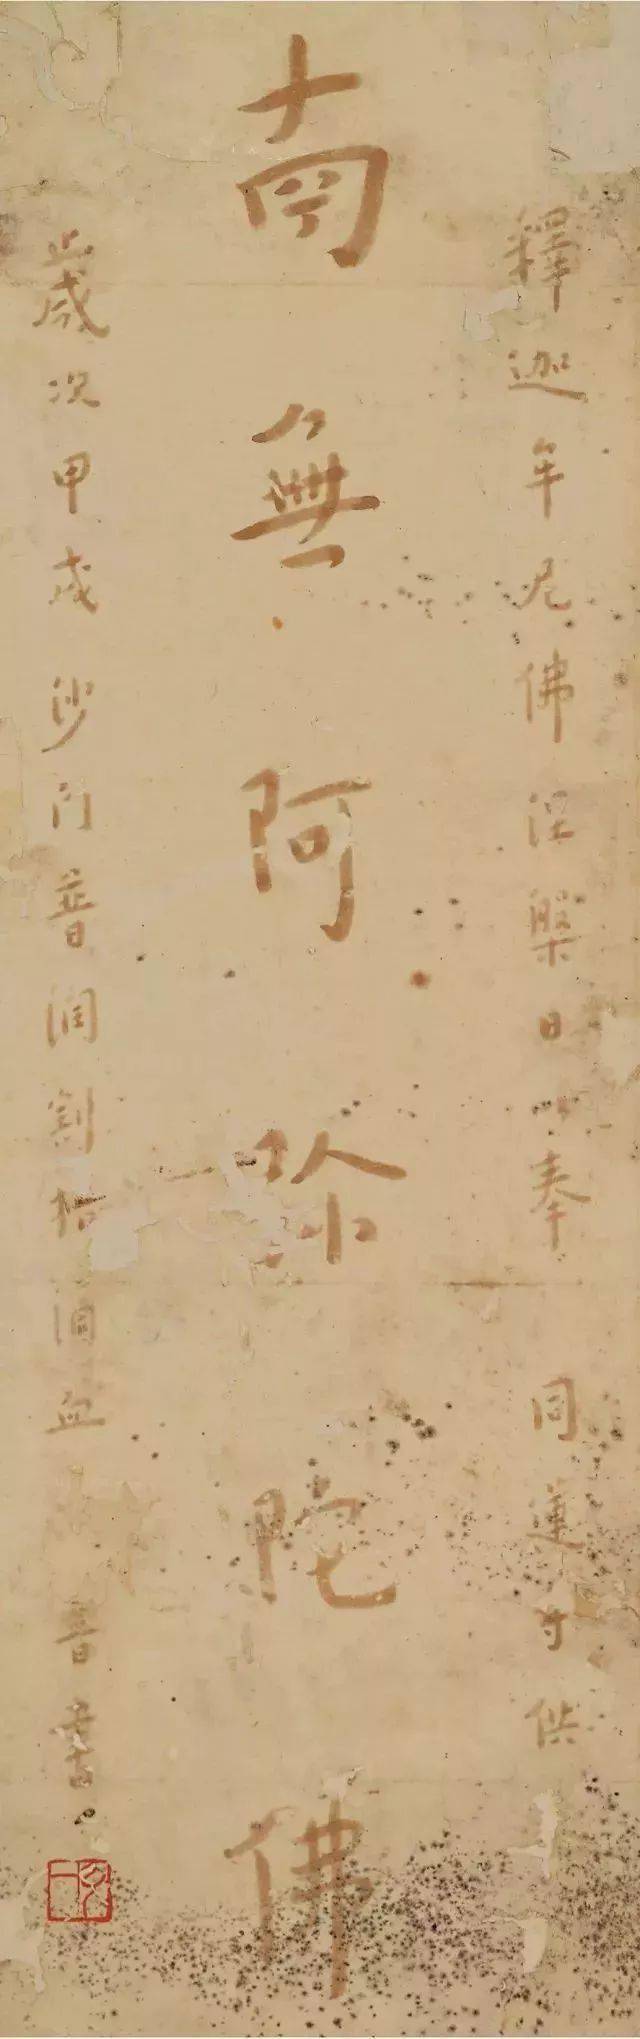 釋迦牟尼佛涅槃日以奉
同蓮寺供
南無阿弥陀佛
歲次甲戌沙門普潤割指血
音書
弘一